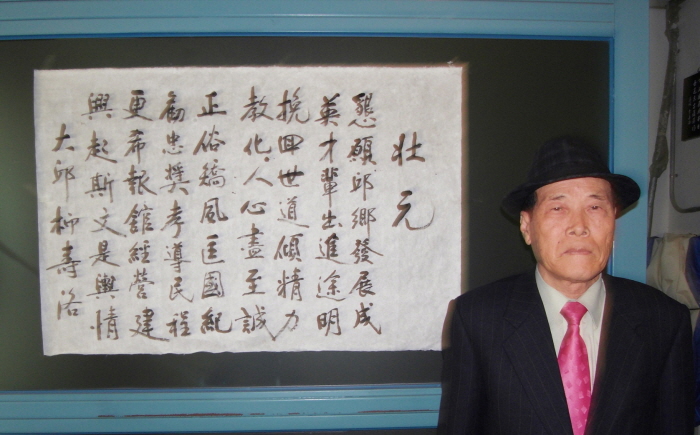 壮元
懇願邱鄉發展成
英才輩出進途明
挽回世道傾精力
教化人心盡至誠
正俗矯風匡國紀
勸忠獎孝導民程
更希報館經營建
興起斯文是輿情
大邱柳壽洛